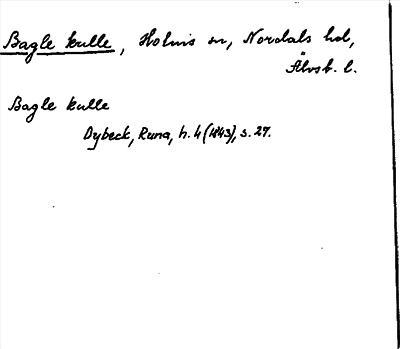 Bagle kulle, Holms sn, Nordals hd,
Älvsb. l.
Bagle kulle
Dybeck, Runa, h. 4 (1843), s. 27.